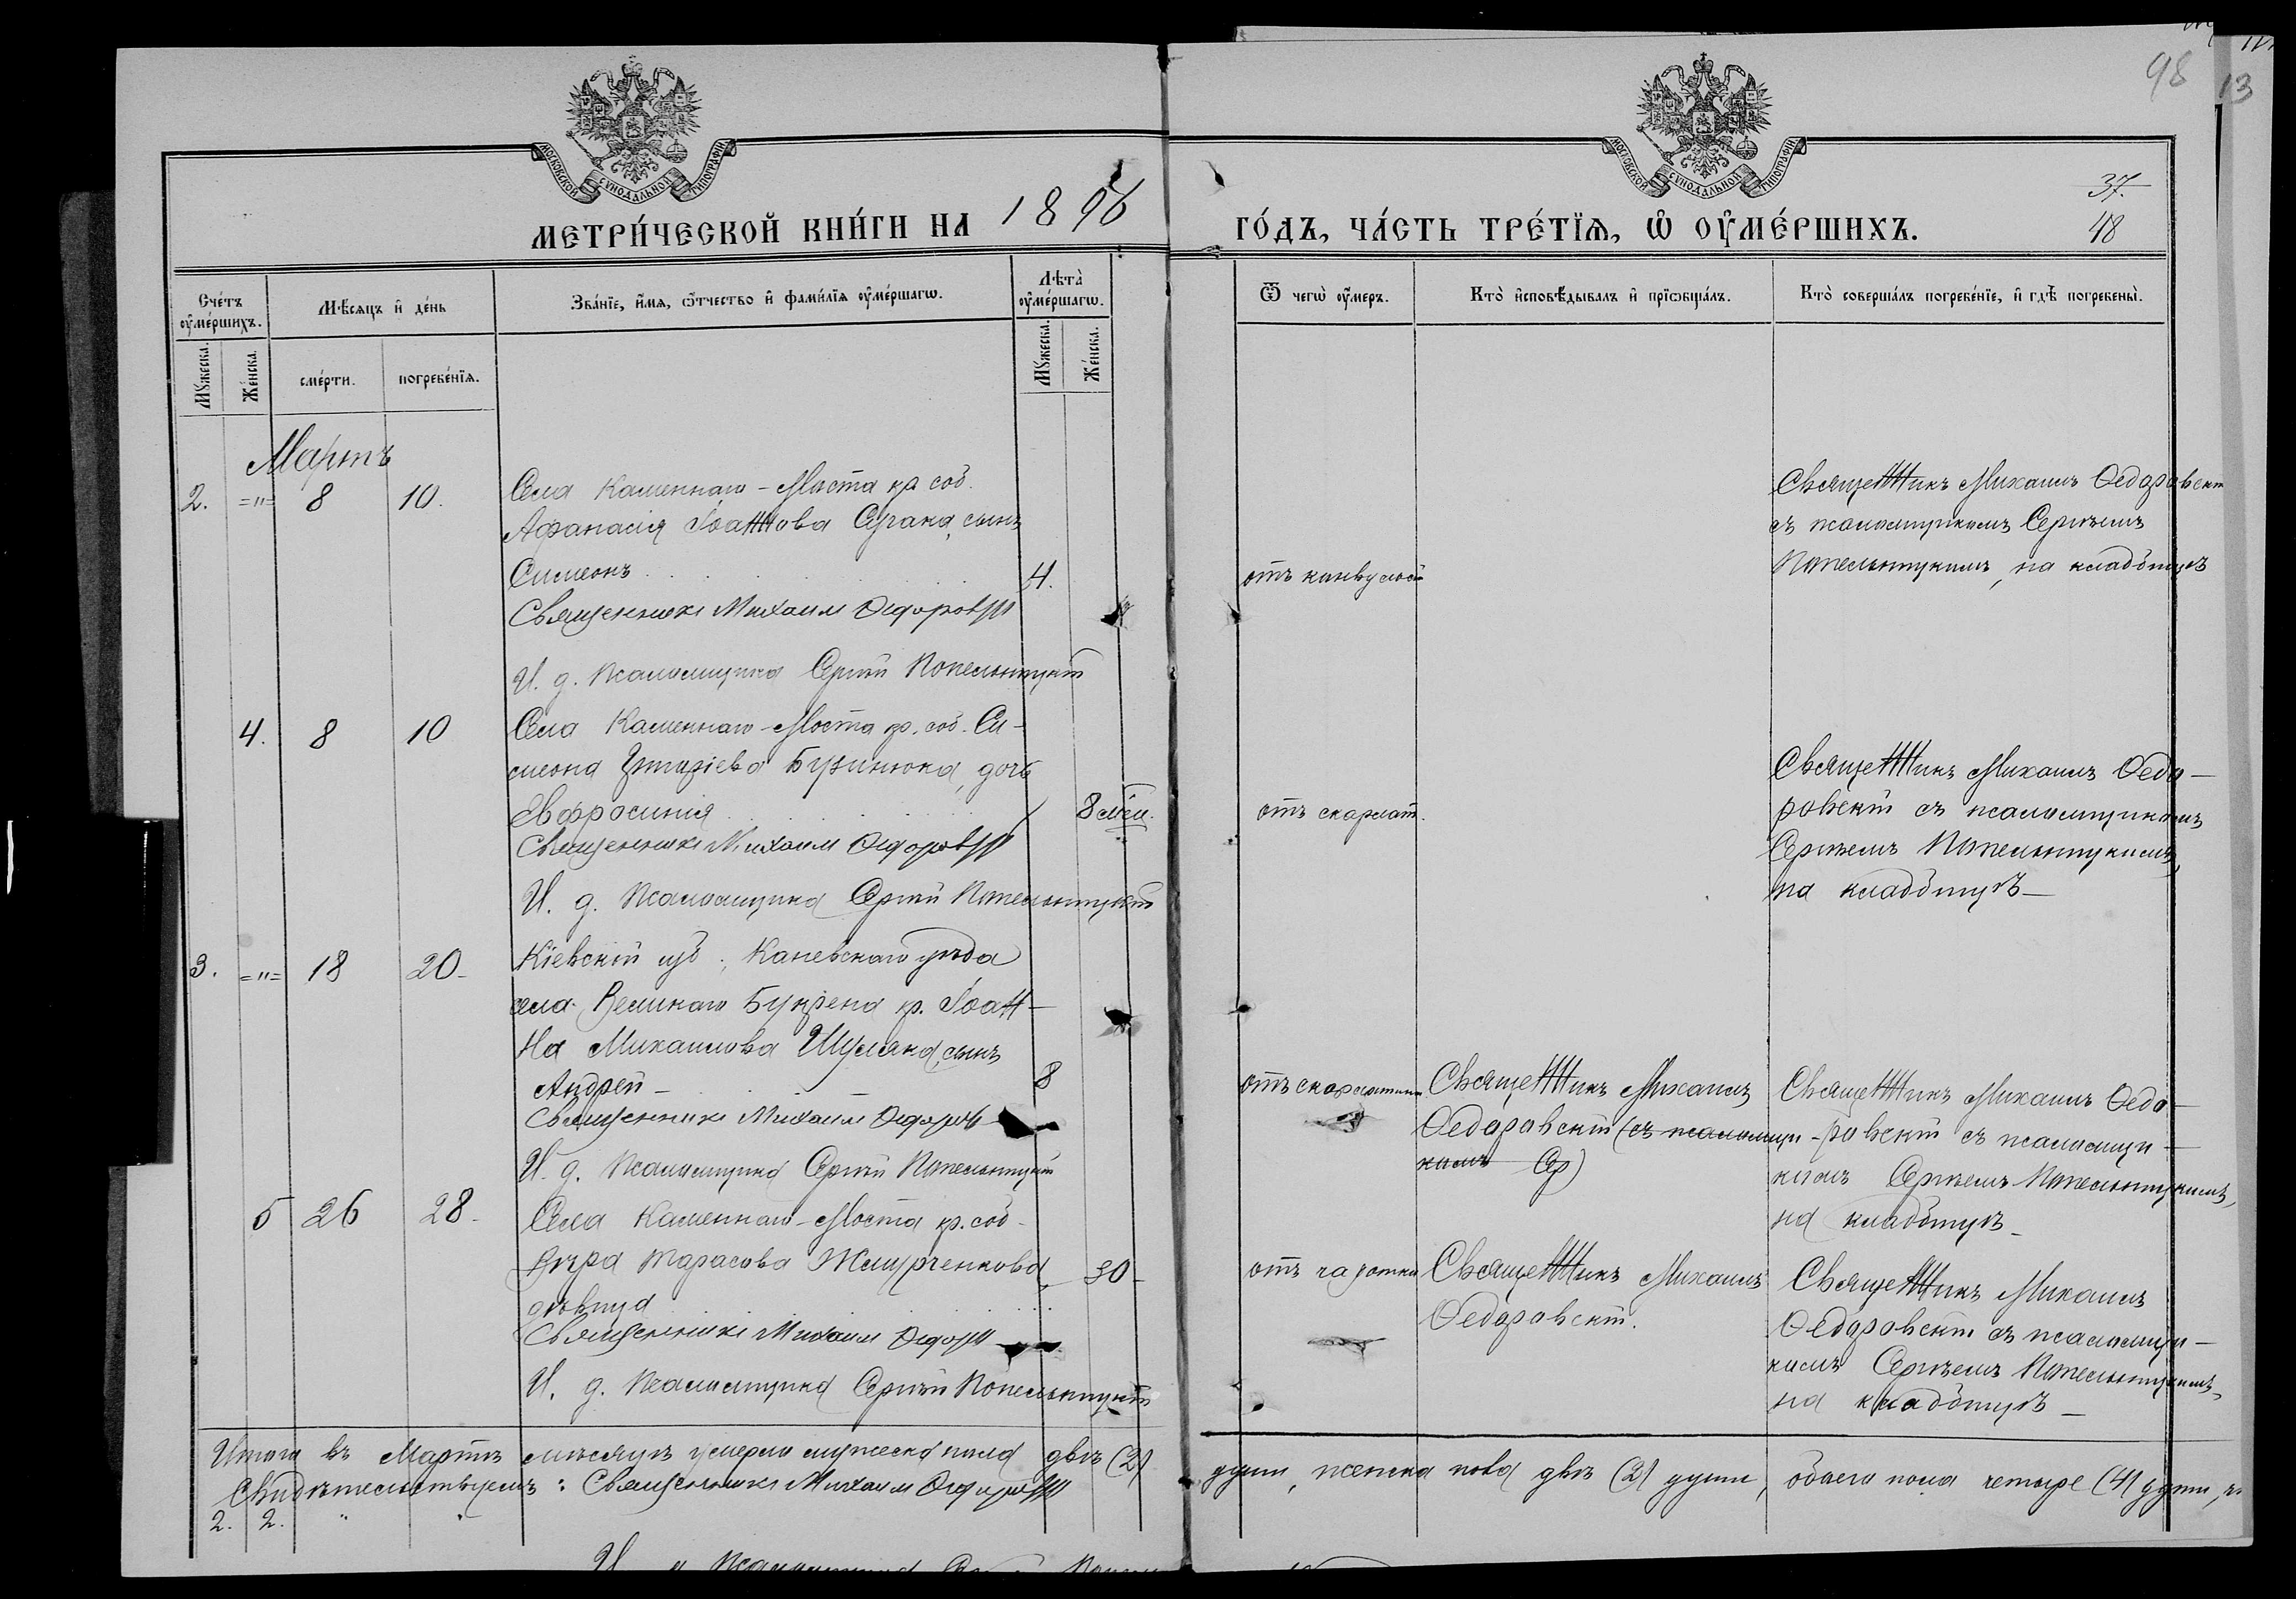 98
13
МОСКОВСКОЙ СУНОДАЛЬНОЙ ТИПОГРАФІИ
МОСКОВСКОЙ СУНОДАЛЬНОЙ ТИПОГРАФІИ
37.
48
МЕТРИ́ЧЕСКОЙ КНИ́ГИ НА 1896 ГО́ДЪ, ЧА́СТЬ ТРЕ́ТЇѦ, Ѡ҆ ОУ҆МЕ́РШИХЪ.
Сче́тъ оу҆ме́ршихъ.
Мѣ́сяцъ и҆ де́нь
Зва́нїе, и҆́мѧ, ѻ҆́тчество и҆ фами́лїѧ оу҆ме́ршагѡ.
Лѣта̀ оу҆ме́ршагѡ.
Ѿ чегѡ̀ оу҆́меръ.
Кто̀ и҆сповѣ́дывалъ и҆ прїѡбща́лъ.
Кто̀ соверша́лъ погребе́нїе, и҆ гдѣ̀ погребены̀.
Му́жеска.
Же́нска.
сме́рти.
погребе́нїѧ.
Му́жеска.
Же́нска.
Мартъ
2. ="= 8 10.
Села Каменнаго-Моста кр. соб.
Афанасія Іоаннова Сугака, сынъ
Симеонъ . . . 4.
Священникъ Михаилъ Ѳедоров
И. д. Псаломщика Сергѣй Попельницкій
отъ конвульсій
Священникъ Михаилъ Ѳедоровскій
съ псаломщикомъ Сергѣемъ
Попельницкимъ, на кладбищѣ
4. 8 10
Села Каменнаго-Моста кр. соб. Си-
меона Григоріева Бузинюка, дочь
Евфросинія . . . 8 мѣс.
Священникъ Михаилъ Ѳедоров
И. д. Псаломщика Сергѣй Попельницкій
отъ скарлат.
Священникъ Михаилъ Ѳедо-
ровскій съ псаломщикомъ
Сергѣемъ Попельницкимъ,
на кладбищѣ-
3. ="= 18 20-
Кіевской губ., Каневскаго уѣзда
села Великаго Букрена кр. Іоан-
на Михаилова Шуляка, сынъ
Андрей - 8
Священникъ Михаилъ Ѳедоров
И. д. Псаломщика Сергѣй Попельницкій
отъ скарлатины
Священникъ Михаилъ
Ѳедоровскій (съ псаломщи-
комъ Ср)
Священникъ Михаилъ Ѳедо-
ровскій съ псаломщи-
комъ Сергѣемъ Попельницкимъ,
на кладбищѣ-
5 26 28-
Села Каменнаго-Моста кр. соб-
Вѣра Тарасова
дѣвица . . . 30-
Священникъ Михаилъ Ѳедоров
И. д. Псаломщика Сергѣй Попельницкій
отъ чахотки
Священникъ Михаилъ
Ѳедоровскій.
Священникъ Михаилъ
Ѳедоровскій съ псаломщи-
комъ Сергѣемъ Попельницкимъ,
на кладбищѣ-
Итого въ Мартѣ мѣсяцѣ умерло мужеска пола двѣ (2) души, женска пола двѣ (2) души, обоего пола четыре (4) души,
Свидѣтельствуемъ: Священникъ Михаилъ Ѳедоров
2. 2.